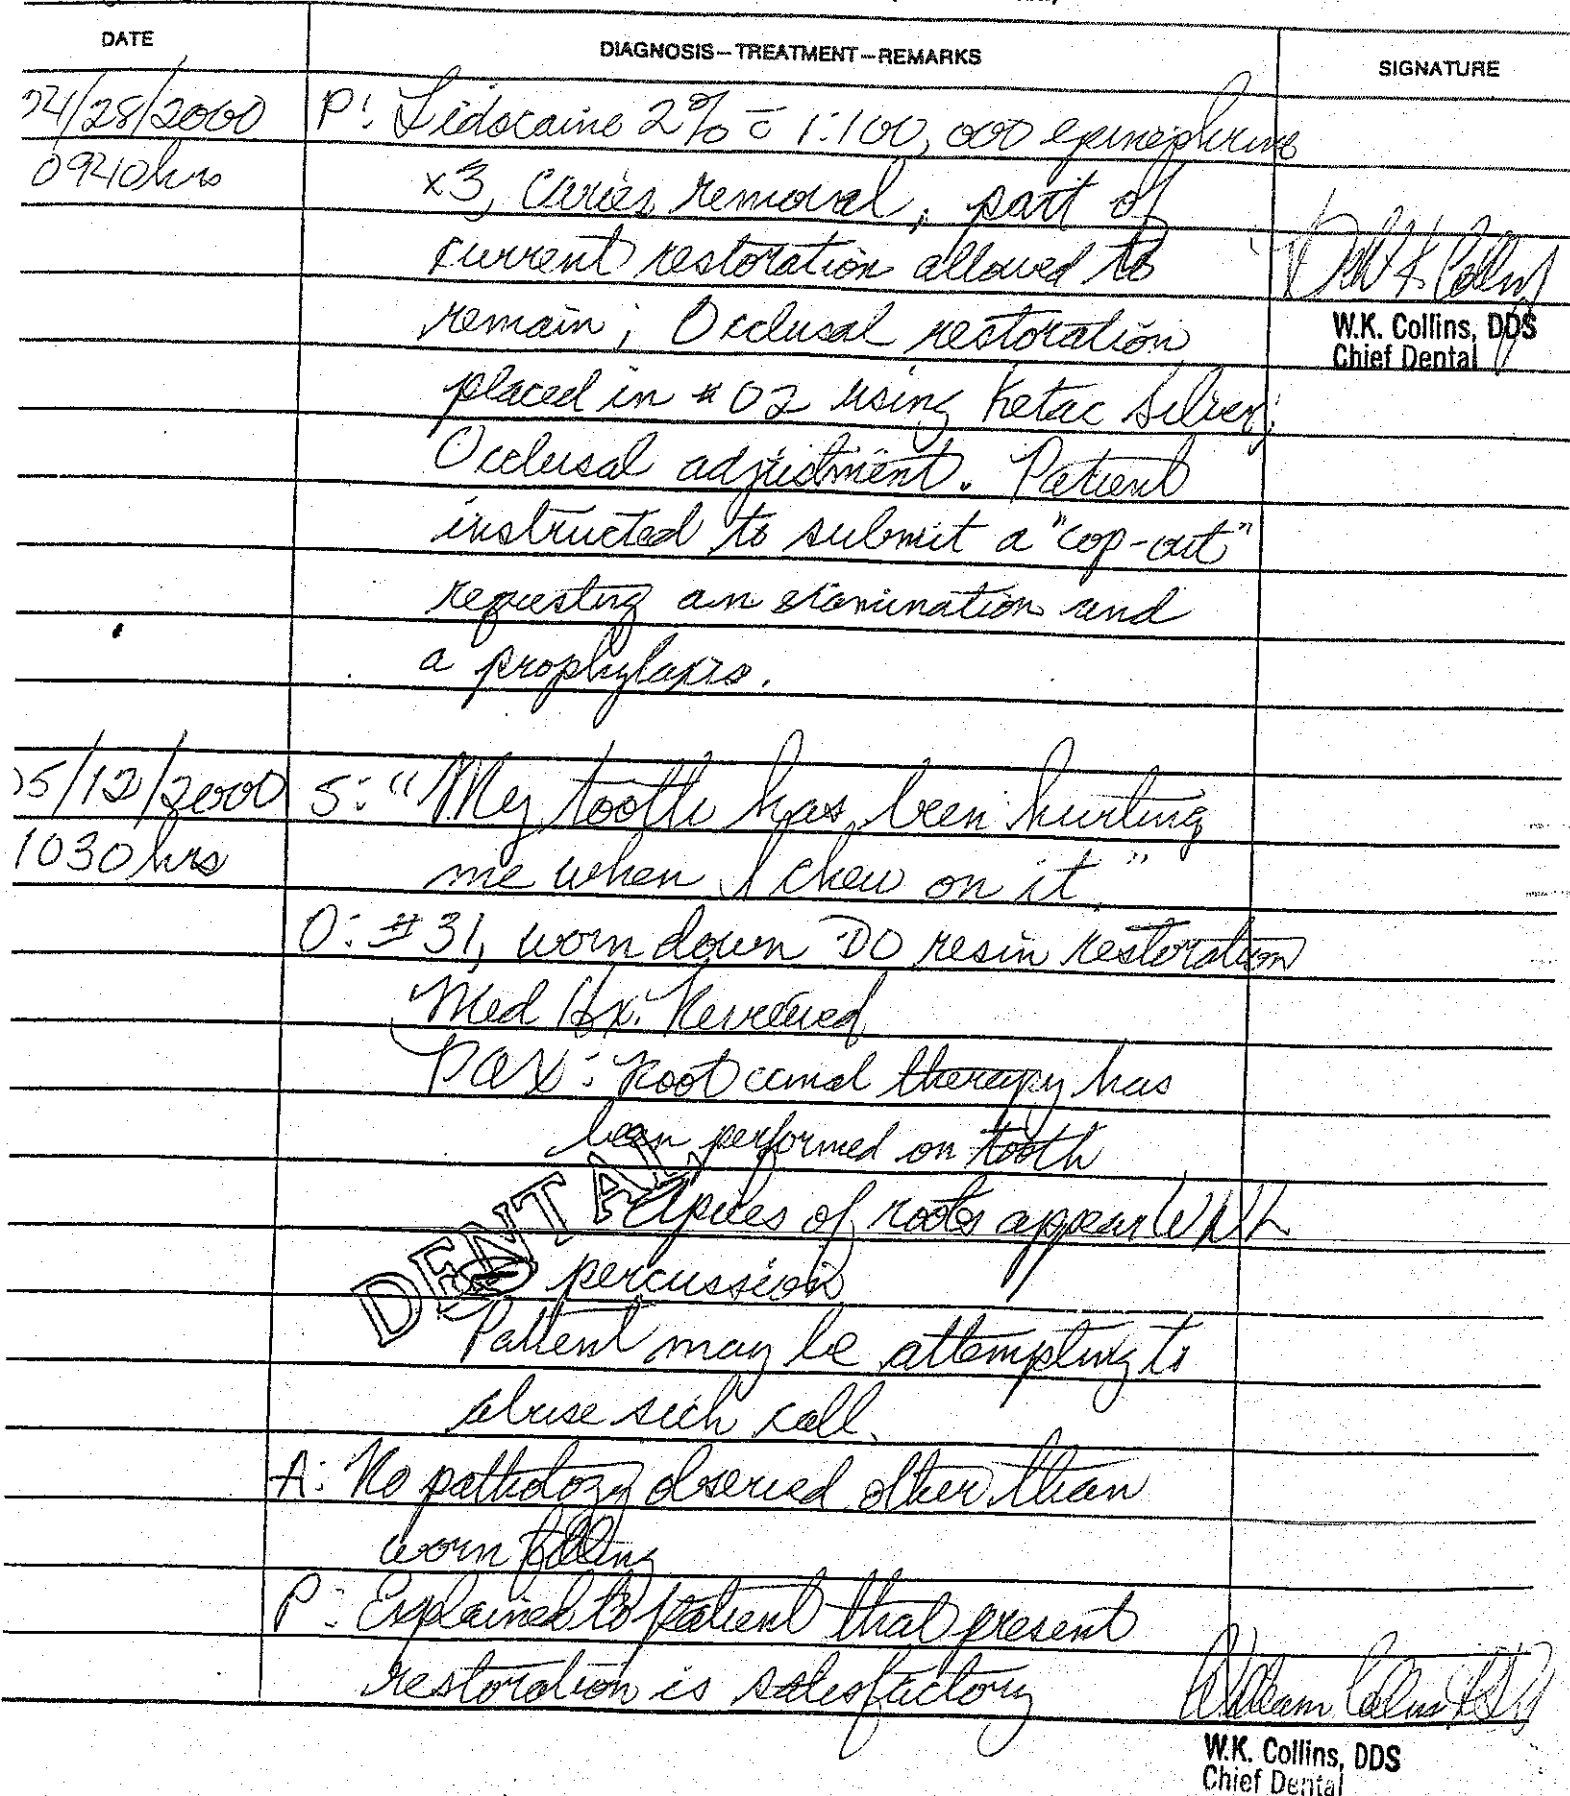 DATE
DIAGNOSIS–TREATMENT–REMARKS
SIGNATURE
04/28/2000 P: Lidocaine 2% c̄ 1:100,000 epinephrine
0940hrs x3, Caries removal; part of
current restoration allowed to
remain; Occlusal restoration
W.K. Collins, DDS
Chief Dental
placed in #02 using Ketac Silver;
Occlusal adjustment. Patient
instructed to submit a "cop-out"
requesting an examination and
a prophylaxis.
05/12/2000 S: "My tooth has been hurting
1030hrs me when I chew on it."
O: #31, worn down DO resin restoration
Med Hx: Reviewed
PAX: Root canal therapy has
been performed on tooth
DENTAL
Apices of roots appear WNL
percussion
Patient may be attempting to
abuse sick call.
A: No pathology observed other than
worn filling
P: Explained to patient that present
restoration is satisfactory
William Collins DDS
W.K. Collins, DDS
Chief Dental